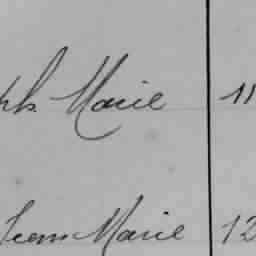 ph Marie 11
Jean Marie 12